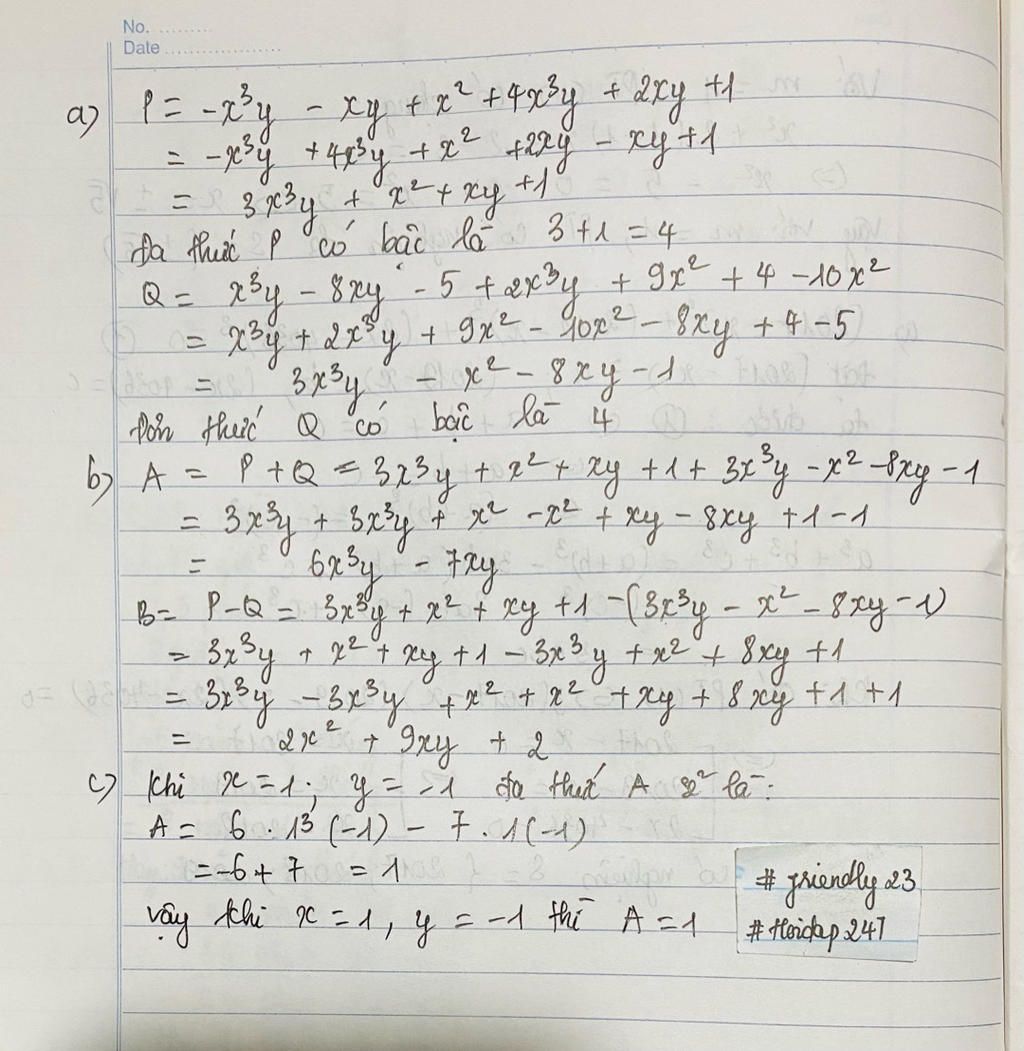 No. .........
Date ...................
a) P = -x³y - xy + x² + 4x³y + 2xy + 1
= -x³y + 4x³y + x² + 2xy - xy + 1
= 3x³y + x² + xy + 1
Đa thức P có bậc là 3 + 1 = 4
Q = x³y - 8xy - 5 + 2x³y + 9x² + 4 - 10x²
= x³y + 2x³y + 9x² - 10x² - 8xy + 4 - 5
= 3x³y - x² - 8xy - 1
Đơn thức Q có bậc là 4
b) A = P + Q = 3x³y + x² + xy + 1 + 3x³y - x² - 8xy - 1
= 3x³y + 3x³y + x² - x² + xy - 8xy + 1 - 1
= 6x³y - 7xy
B = P - Q = 3x³y + x² + xy + 1 - (3x³y - x² - 8xy - 1)
= 3x³y + x² + xy + 1 - 3x³y + x² + 8xy + 1
= 3x³y - 3x³y + x² + x² + xy + 8xy + 1 + 1
= 2x² + 9xy + 2
c) Khi x = 1; y = -1 đa thức A là:
A = 6 . 1³ (-1) - 7 . 1 (-1)
= -6 + 7 = 1
vậy khi x = 1, y = -1 thì A = 1
# friendly 23
# Hoidap 247